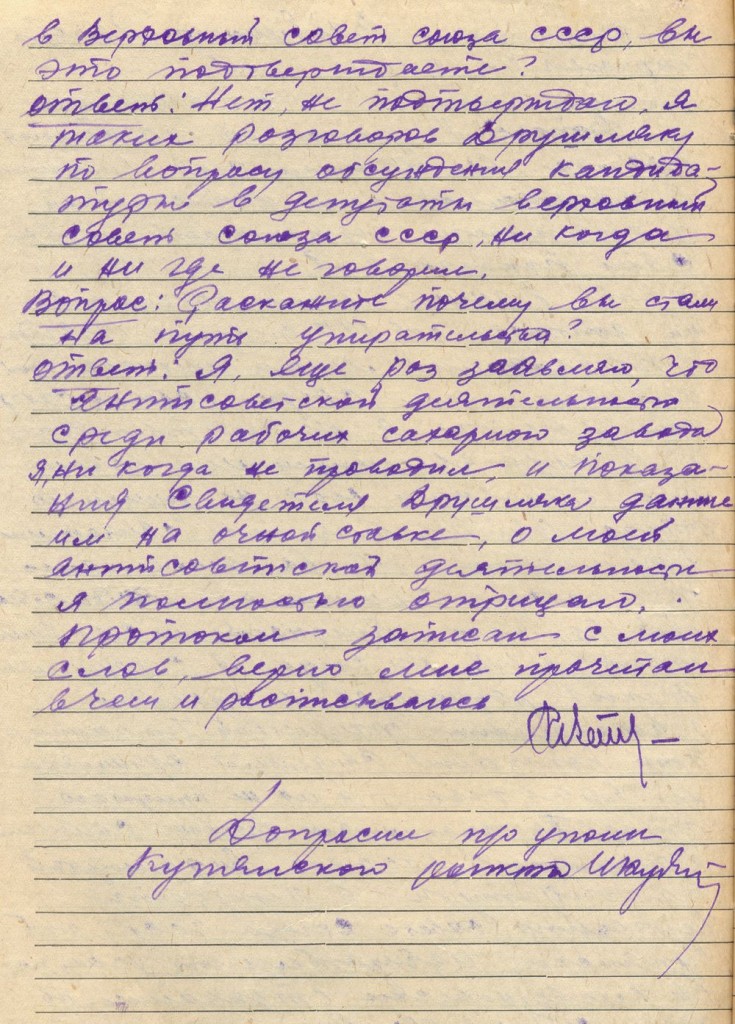 в Верховный совет союза ссср, вы
это подтверждаете?
ответ: Нет, не подтверждаю, я
таких розговоров Друшляку
по вопросу обсуждения кандида-
туры в депутаты верховный
совет союза ссср, ни когда
и ни где не говорил.
Вопрос: Раскажите почему вы стали
на путь упирательства?
ответ: Я, еще роз заявляю, что
антисоветской деятельности
среди рабочих сахарного завода
я, ни когда не проводил, и показа-
ния Свидетеля Друшляка данные
им на очной ставке, о моей
антисоветской деятельности
я полностью отрицаю.
Протокол записан с моих
слов, верно мне прочитан
в чем и росписываюсь
Допросил